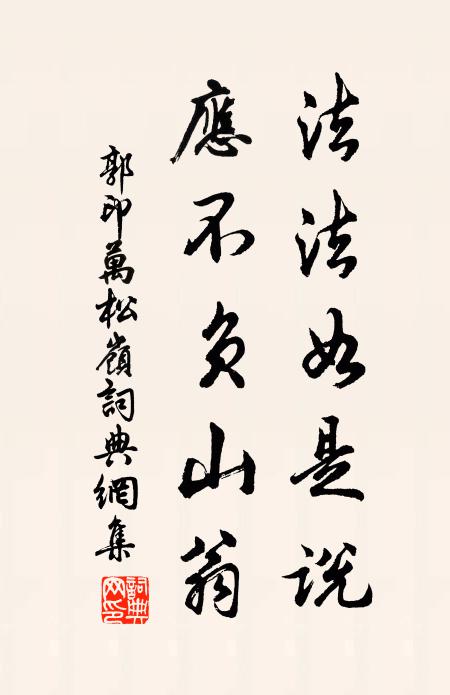 法法如是说
應不負山翁
郭印萬松嶺詞典網集
詞典網印